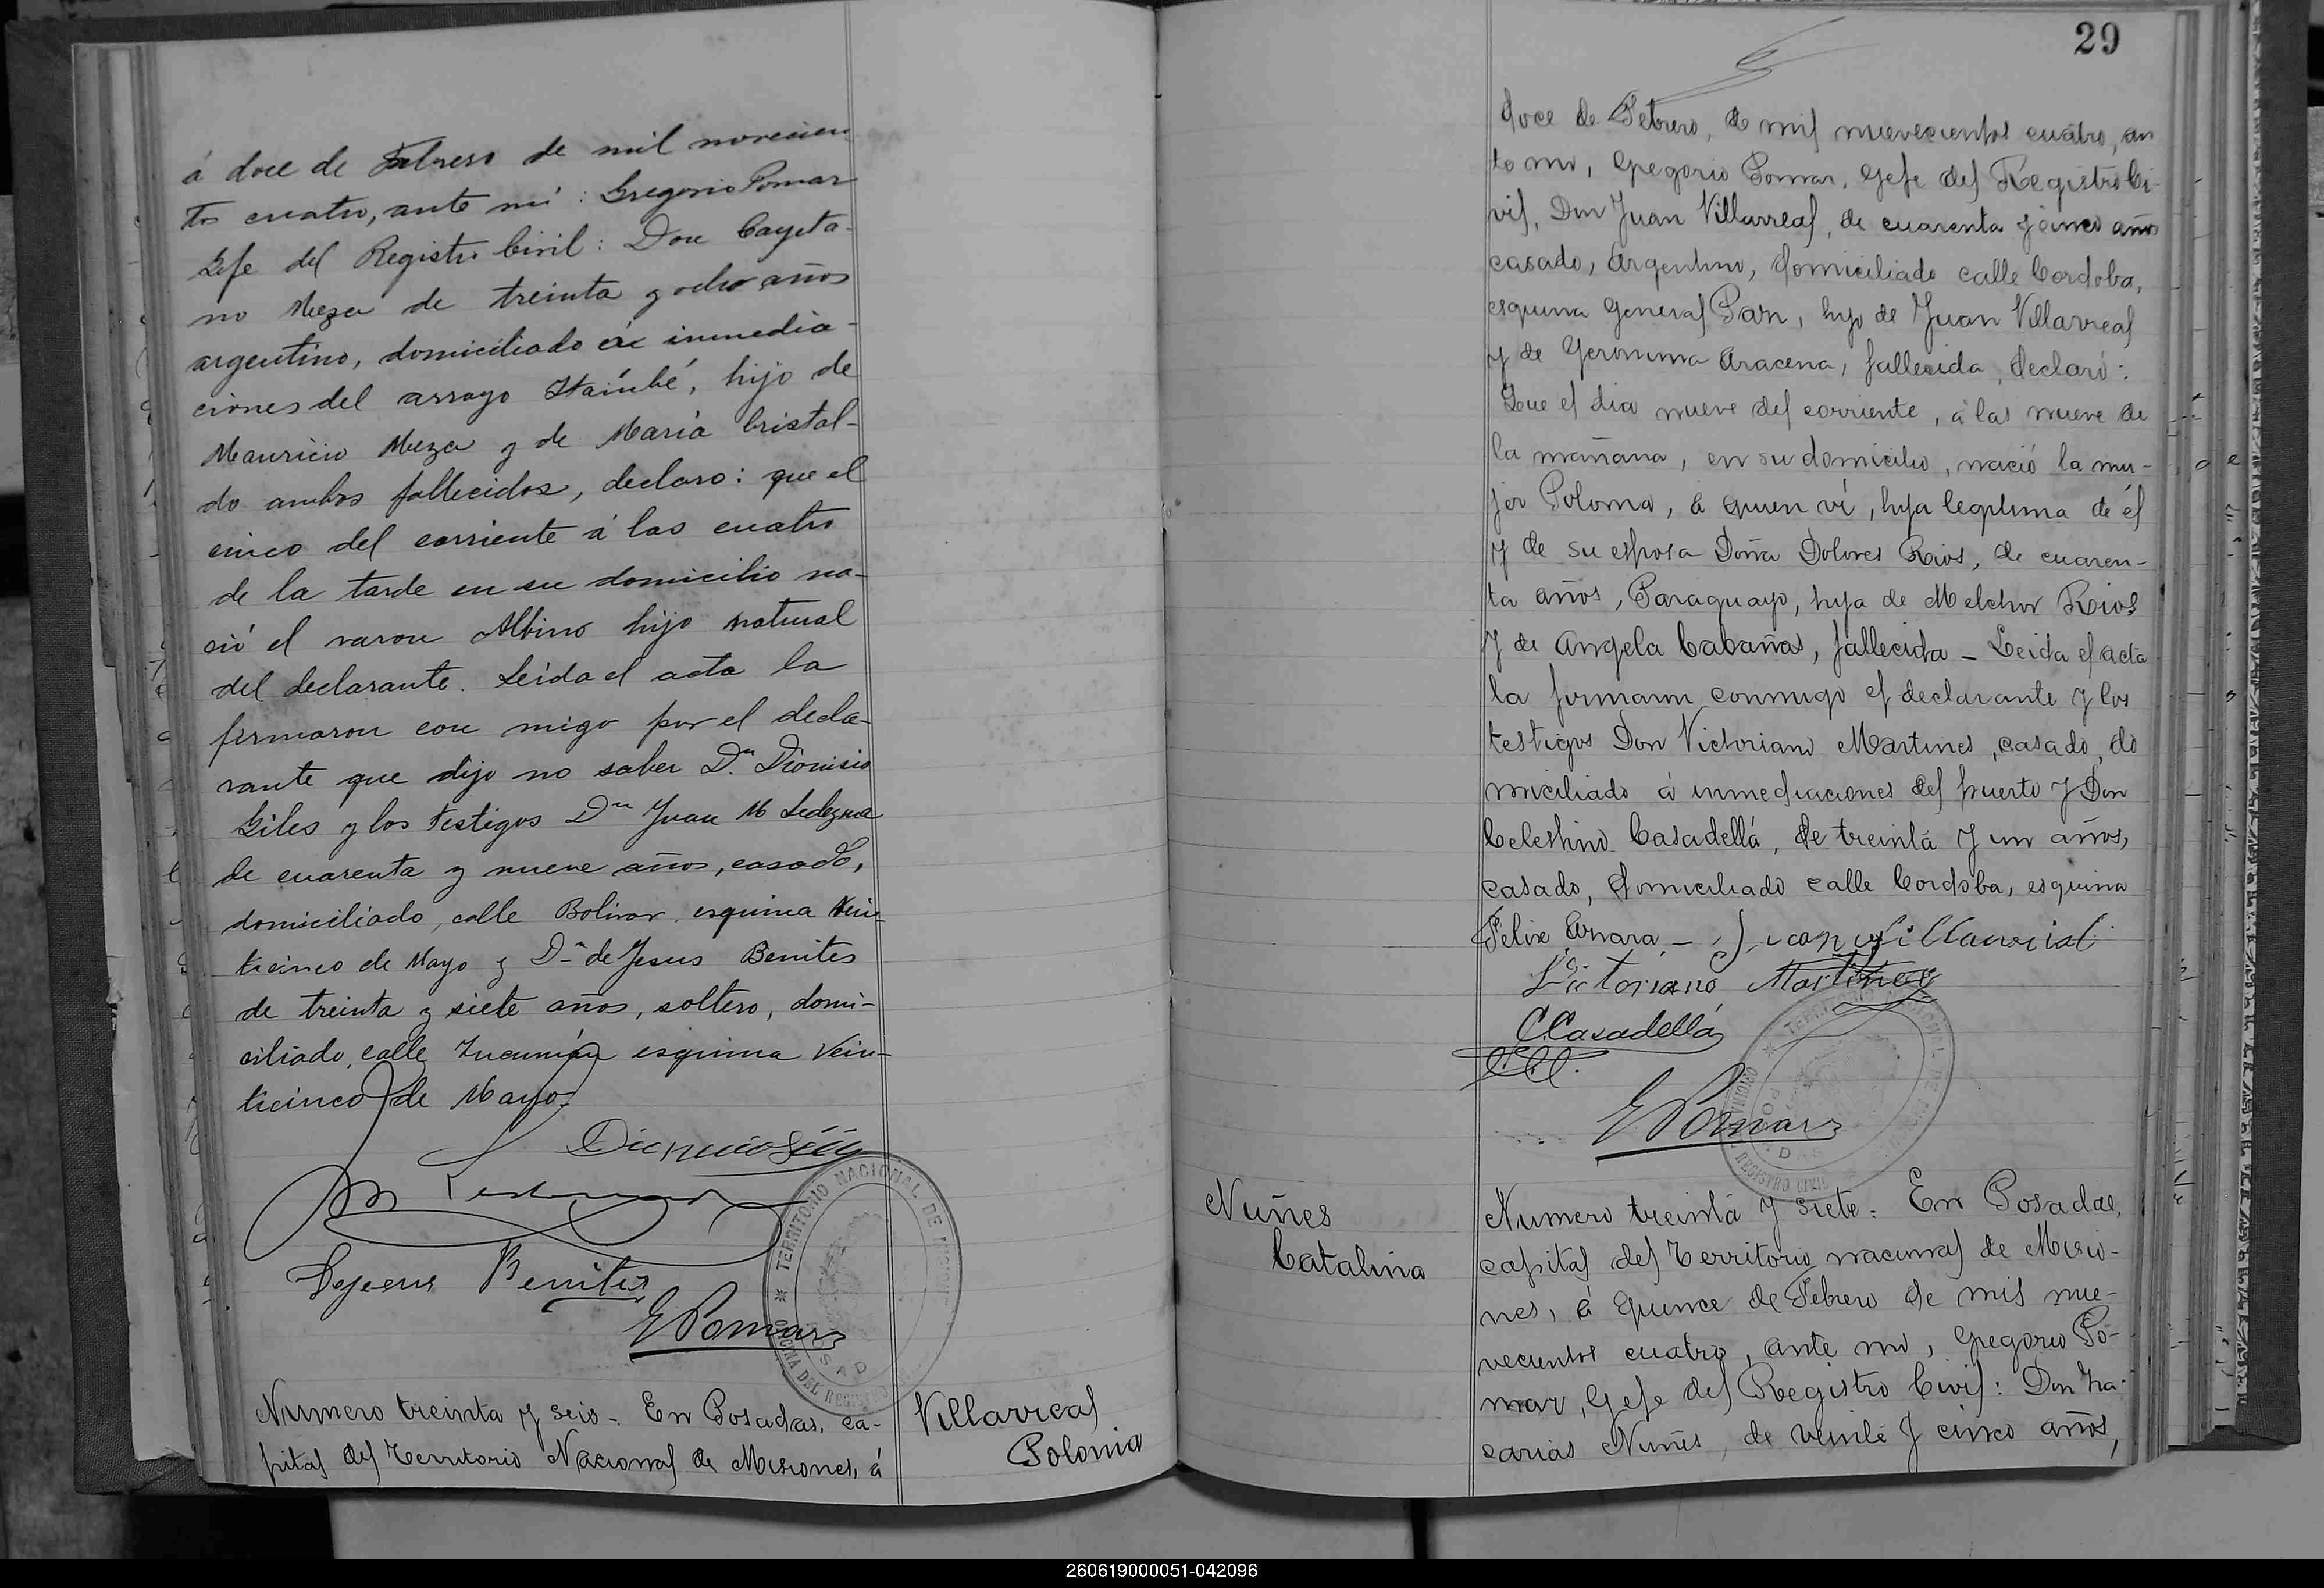 á doce de Febrero de mil novecien
tos cuatro, ante mí: Gregorio Pomar
Gefe del Registro Civil: Don Cayeta-
no Meza de treinta y ocho años
argentino, domiciliado á inmedia-
ciones del arroyo Itaimbé, hijo de
Mauricio Meza y de María Cristal-
do ambos fallecidos, declaro: que el
cinco del corriente á las cuatro
de la tarde en su domicilio na-
ció el varon Albino hijo natural
del declarante. Leida el acta la
firmaron con migo por el decla-
rante que dijo no saber Dn. Dionisio
Giles y los testigos Dn Juan M Ledezma
de cuarenta y nueve años, casado,
domiciliado, calle Bolivar esquina Vein-
ticinco de Mayo y Dn de Jesus Benites
de treinta y siete años, soltero, domi-
ciliado, calle Tucumán esquina Vein-
ticinco de Mayo.
Dionicio Giles
M Ledezma
Benites
G Pomar
TERRITORIO NACIONAL DE MISIONES
OFICINA DEL REGISTRO
POSADAS
Numero treinta y seis - En Posadas, ca-
pital del Territorio Nacional de Misiones, á
Villarreal
Polonia
29
doce de Febrero, de mil nuevecientos cuatro, an
te mi, Gregorio Pomar, Gefe del Registro Ci-
vil, Don Juan Villarreal, de cuarenta y cinco años
casado, Argentino, domiciliado calle Cordoba,
esquina General Paz, hijo de Juan Villarreal
y de Geronima Aracena, fallecida, declaró:
Que el dia nueve del corriente, á las nueve de
la mañana, en su domicilio, nació la mu-
jer Polonia, á quien ví, hija legitima de él
y de su esposa Doña Dolores Rios, de cuaren-
ta años, Paraguaya, hija de Melchor Rios
y de Angela Cabañas, fallecida - Leida el acta
la firmaron conmigo el declarante y los
testigos Don Victoriano Martines, casado, do
miciliado á inmediaciones del puerto y Don
Celestino Casadellá, de treinta y un años,
casado, domiciliado calle Cordoba, esquina
Felix Azara - Juan Villarrial
Victoriano Martinez
C Casadellá
G Pomar
TERRITORIO NACIONAL DE MISIONES
OFICINA REGISTRO CIVIL
POSADAS
Nuñes
Catalina
Numero treinta y siete: En Posadas,
capital del Territorio nacional de Misio-
nes, á quince de Febrero de mil nue-
vecientos cuatro, ante mi, Gregorio Po-
mar, Gefe del Registro Civil: Don Za-
carias Nuñes, de veinte y cinco años,
260619000051-042096